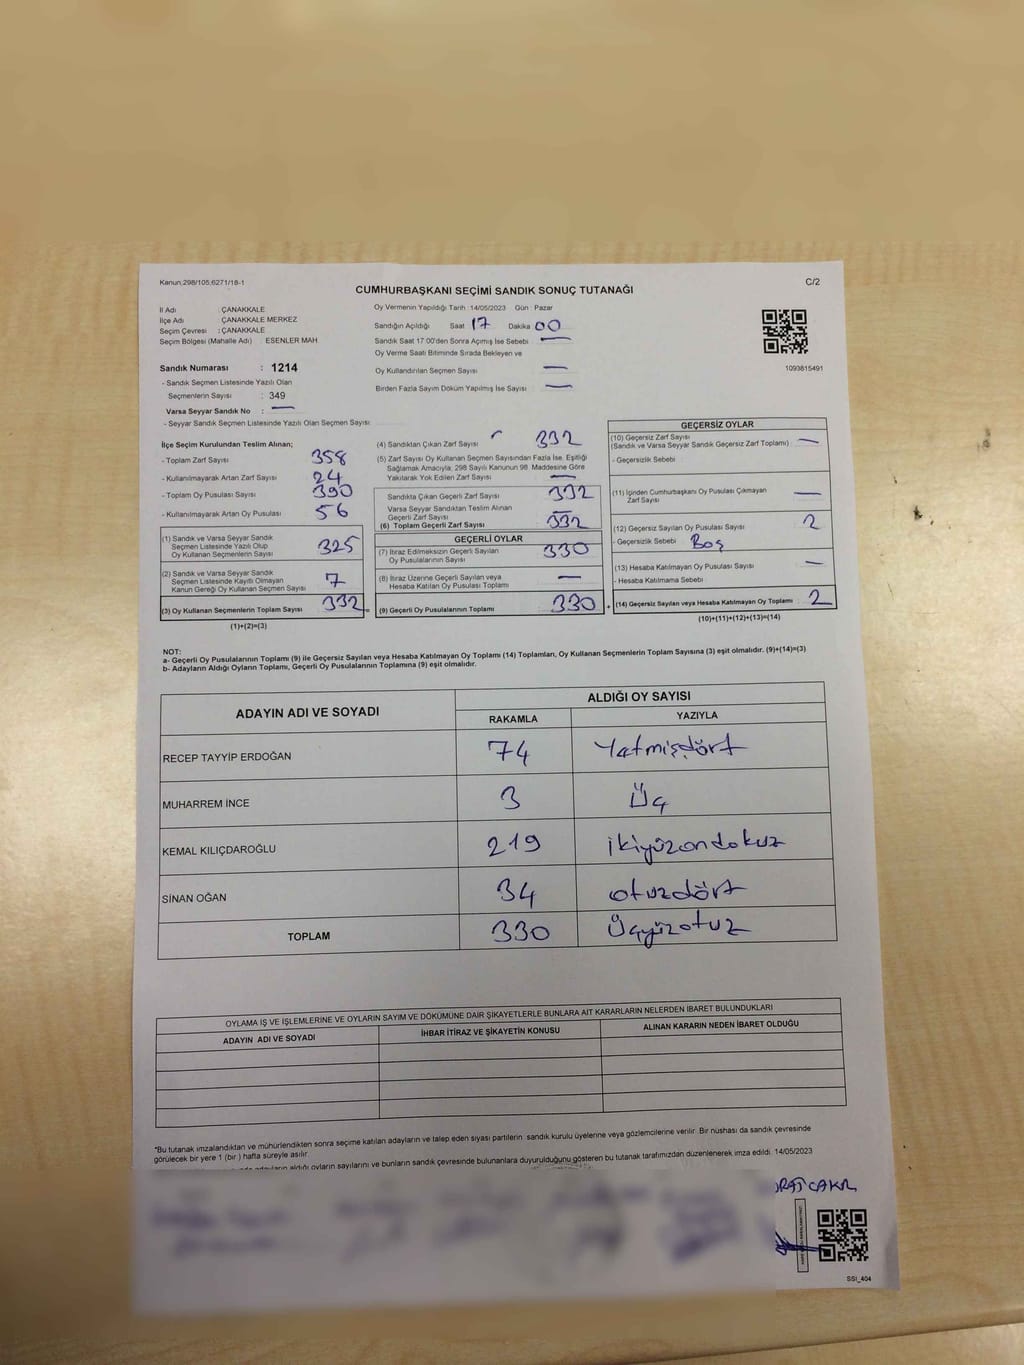 Kanun;298/105;6271/18-1
C/2
CUMHURBAŞKANI SEÇİMİ SANDIK SONUÇ TUTANAĞI
İl Adı : ÇANAKKALE
İlçe Adı : ÇANAKKALE MERKEZ
Seçim Çevresi : ÇANAKKALE
Seçim Bölgesi (Mahalle Adı) ESENLER MAH
Sandık Numarası : 1214
- Sandık Seçmen Listesinde Yazılı Olan
Seçmenlerin Sayısı : 349
Varsa Seyyar Sandık No : —
- Seyyar Sandık Listesinde Yazılı Olan Seçmen Sayısı
Oy Vermenin Yapıldığı Tarih :14/05/2023 Gün : Pazar
Sandığın Açıldığı Saat 17 Dakika 00
Sandık Saat 17:00'den Sonra Açımış İse Sebebi —
Oy Verme Saati Bitiminde Sırada Bekleyen ve
Oy Kullandırılan Seçmen Sayısı —
Birden Fazla Sayım Döküm Yapılmış İse Sayısı —
1093815491
İlçe Seçim Kurulundan Teslim Alınan;
- Toplam Zarf Sayısı 358
- Kullanılmayarak Artan Zarf Sayısı 24
- Toplam Oy Pusulası Sayısı 390
- Kullanılmayarak Artan Oy Pusulası 56
(1) Sandık ve Varsa Seyyar Sandık
Seçmen Listesinde Yazılı Olup
Oy Kullanan Seçmenlerin Sayısı 325
(2) Sandık ve Varsa Seyyar Sandık
Seçmen Listesinde Kayıtlı Olmayan
Kanun Gereği Oy Kullanan Seçmen Sayısı 7
(3) Oy Kullanan Seçmenlerin Toplam Sayısı 332 =
(1)+(2)=(3)
(4) Sandıktan Çıkan Zarf Sayısı 332
(5) Zarf Sayısı Oy Kullanan Seçmen Sayısından Fazla İse, Eşitliği
Sağlamak Amacıyla, 298 Sayılı Kanunun 98. Maddesine Göre
Yakılarak Yok Edilen Zarf Sayısı —
Sandıkta Çıkan Geçerli Zarf Sayısı 332
Varsa Seyyar Sandıktan Teslim Alınan
Geçerli Zarf Sayısı —
(6) Toplam Geçerli Zarf Sayısı 332
GEÇERLİ OYLAR
(7) İtiraz Edilmeksizin Geçerli Sayılan
Oy Pusulalarının Sayısı 330
(8) İtiraz Üzerine Geçerli Sayılan veya
Hesaba Katılan Oy Pusulası Toplamı —
(9) Geçerli Oy Pusulalarının Toplamı 330 +
GEÇERSİZ OYLAR
(10) Geçersiz Zarf Sayısı
(Sandık ve Varsa Seyyar Sandık Geçersiz Zarf Toplamı) —
- Geçersizlik Sebebi
(11) İçinden Cumhurbaşkanı Oy Pusulası Çıkmayan
Zarf Sayısı —
(12) Geçersiz Sayılan Oy Pusulası Sayısı 2
- Geçersizlik Sebebi Boş
(13) Hesaba Katılmayan Oy Pusulası Sayısı —
- Hesaba Katılmama Sebebi
(14) Geçersiz Sayılan veya Hesaba Katılmayan Oy Toplamı 2
(10)+(11)+(12)+(13)=(14)
NOT:
a- Geçerli Oy Pusulalarının Toplamı (9) ile Geçersiz Sayılan veya Hesaba Katılmayan Oy Toplamı (14) Toplamları, Oy Kullanan Seçmenlerin Toplam Sayısına (3) eşit olmalıdır. (9)+(14)=(3)
b- Adayların Aldığı Oyların Toplamı, Geçerli Oy Pusulalarının Toplamına (9) eşit olmalıdır.
ADAYIN ADI VE SOYADI
ALDIĞI OY SAYISI
RAKAMLA YAZIYLA
RECEP TAYYİP ERDOĞAN 74 Yetmişdört
MUHARREM İNCE 3 Üç
KEMAL KILIÇDAROĞLU 219 ikiyüzondokuz
SİNAN OĞAN 34 otuzdört
TOPLAM 330 Üçyüzotuz
OYLAMA İŞ VE İŞLEMLERİNE VE OYLARIN SAYIM VE DÖKÜMÜNE DAİR ŞİKAYETLERLE BUNLARA AİT KARARLARIN NELERDEN İBARET BULUNDUKLARI
ADAYIN ADI VE SOYADI İHBAR İTİRAZ VE ŞİKAYETİN KONUSU ALINAN KARARIN NEDEN İBARET OLDUĞU
*Bu tutanak imzalandıktan ve mühürlendikten sonra seçime katılan adayların ve talep eden siyasi partilerin sandık kurulu üyelerine veya gözlemcilerine verilir. Bir nüshası da sandık çevresinde
görülecek bir yere 1 (bir ) hafta süreyle asılır.
adayların aldığı oyların sayılarını ve bunların sandık çevresinde bulunanlara duyurulduğunu gösteren bu tutanak tarafımızdan düzenlenerek imza edildi. 14/05/2023
SSI_404